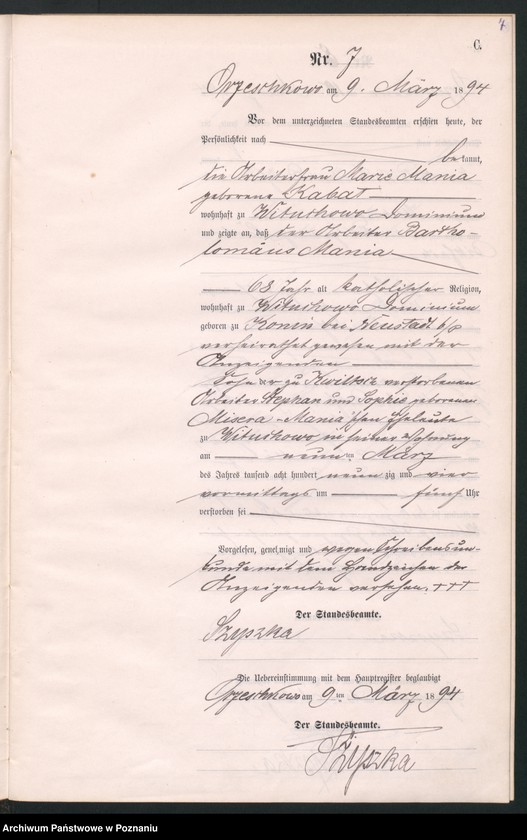 4
C.
Nr. 7
Orzeschkowo am 9. März 1894
Vor dem unterzeichneten Standesbeamten erschien heute, der
Persönlichkeit nach
bekannt,
die Arbeiterfrau Marie Mania
geborene Kabat
wohnhaft zu Wituchowo Dominium
und zeigte an, daß der Arbeiter Bartho-
lomäus Mania
63 Jahr alt katholischer Religion,
wohnhaft zu Wituchowo Dominium
geboren zu Konin bei Neustadt b/p
verheirathet gewesen mit der
Anzeigenden
Sohn der zu Kwiltsch verstorbenen
Arbeiter Stephan und Sophie geborenen
Misera-Mania'schen Eheleute
zu Wituchowo in seiner Wohnung
am neunten März
des Jahres tausend acht hundert neunzig und vier
vormittags um fünf Uhr
verstorben sei
Vorgelesen, genehmigt und wegen Schreibensun-
kunde mit dem Handzeichen der
Anzeigenden versehen. +++
Der Standesbeamte.
Szyszka
Die Uebereinstimmung mit dem Hauptregister beglaubigt
Orzeschkowo am 9ten März 1894
Der Standesbeamte.
Szyszka
Archiwum Państwowe w Poznaniu